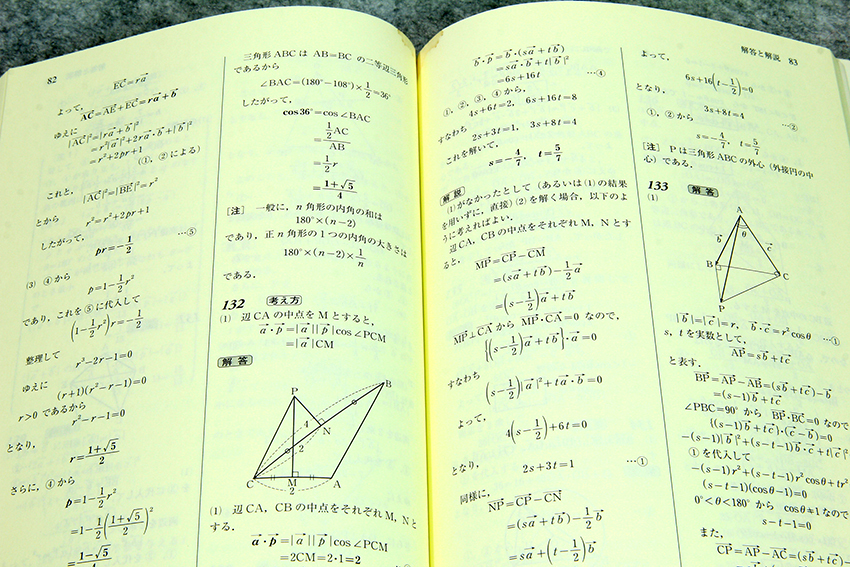 82
EC⃗=ra⃗
よって,
AC⃗=AE⃗+EC⃗=ra⃗+b⃗
ゆえに
|AC⃗|²=|ra⃗+b⃗|²
=r²|a⃗|²+2ra⃗・b⃗+|b⃗|²
=r²+2pr+1 (①, ②による)
これと,
|AC⃗|²=|BE⃗|²=r²
とから
r²=r²+2pr+1
したがって,
pr=-1/2 …⑤
(3) ④から
p=1-1/2r²
であり, これを⑤に代入して
(1-1/2r²)r=-1/2
整理して
r³-2r-1=0
ゆえに
(r+1)(r²-r-1)=0
r>0であるから
r²-r-1=0
となり,
r=(1+√5)/2
さらに, ④から
p=1-1/2r²
=1-1/2((1+√5)/2)²
=(1-√5)/4
三角形ABCは AB=BC の二等辺三角形
であるから
∠BAC=(180°-108°)×1/2=36°
したがって,
cos36°=cos∠BAC
=(1/2AC)/AB
=1/2r
=(1+√5)/4
[注] 一般に, n角形の内角の和は
180°×(n-2)
であり, 正n角形の1つの内角の大きさは
180°×(n-2)×1/n
である.
132 考え方
(1) 辺CAの中点をMとすると,
a⃗・p⃗=|a⃗||p⃗|cos∠PCM
=|a⃗|CM
解答
P
B
4
N
2
C
M
A
2
(1) 辺CA, CBの中点をそれぞれM, Nと
する.
a⃗・p⃗=|a⃗||p⃗|cos∠PCM
=2CM=2・1=2
b⃗・p⃗=b⃗・(sa⃗+tb⃗)
=sa⃗・b⃗+t|b⃗|²
=6s+16t …④
①, ②, ③, ④から,
4s+6t=2, 6s+16t=8
すなわち
2s+3t=1, 3s+8t=4
これを解いて,
s=-4/7, t=5/7
解説
(1)がなかったとして(あるいは(1)の結果
を用いずに, 直接)(2)を解く場合, 以下のよ
うに考えればよい.
辺CA, CBの中点をそれぞれM, Nとす
ると,
MP⃗=CP⃗-CM⃗
=(sa⃗+tb⃗)-1/2a⃗
=(s-1/2)a⃗+tb⃗
MP⃗⊥CA⃗から MP⃗・CA⃗=0 なので,
{(s-1/2)a⃗+tb⃗}・a⃗=0
すなわち
(s-1/2)|a⃗|²+ta⃗・b⃗=0
よって,
4(s-1/2)+6t=0
となり,
2s+3t=1 …①
同様に,
NP⃗=CP⃗-CN⃗
=(sa⃗+tb⃗)-1/2b⃗
=sa⃗+(t-1/2)b⃗
解答と解説 83
よって,
6s+16(t-1/2)=0
となり,
3s+8t=4 …②
①, ②から
s=-4/7, t=5/7
[注] Pは三角形ABCの外心(外接円の中
心)である.
133 解答
(1)
A
θ
b⃗
c⃗
B
C
P
|b⃗|=|c⃗|=r, b⃗・c⃗=r²cosθ …①
s, tを実数として,
AP⃗=sb⃗+tc⃗
と表す.
BP⃗=AP⃗-AB⃗=(sb⃗+tc⃗)-b⃗
=(s-1)b⃗+tc⃗
∠PBC=90°から BP⃗・BC⃗=0なので
{(s-1)b⃗+tc⃗}・(c⃗-b⃗)=0
-(s-1)|b⃗|²+(s-t-1)b⃗・c⃗+t|c⃗|²
①を代入して
-(s-1)r²+(s-t-1)r²cosθ+tr²
(s-t-1)(cosθ-1)=0
0°<θ<180°から cosθ≠1なので
s-t-1=0
また,
CP⃗=AP⃗-AC⃗=(sb⃗+tc⃗)